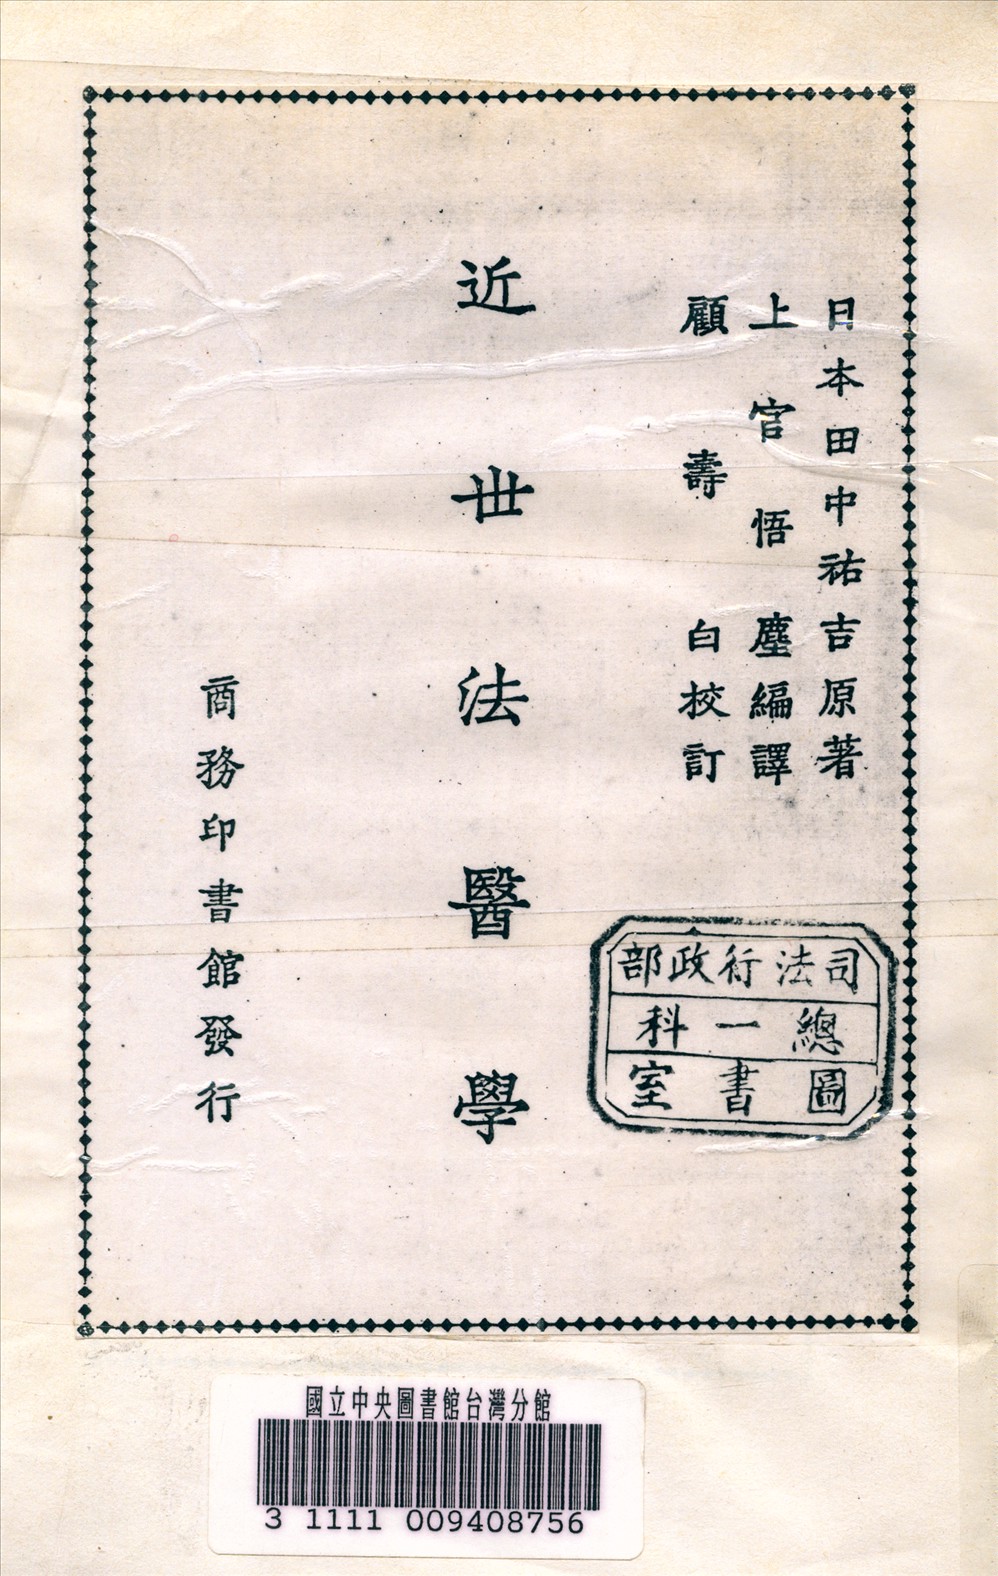 日本田中祐吉原著
上官悟塵編譯
顧壽白校訂
近世法醫學
商務印書館發行
司法行政部
總一科
圖書室
國立中央圖書館台灣分館
3 1111 009408756